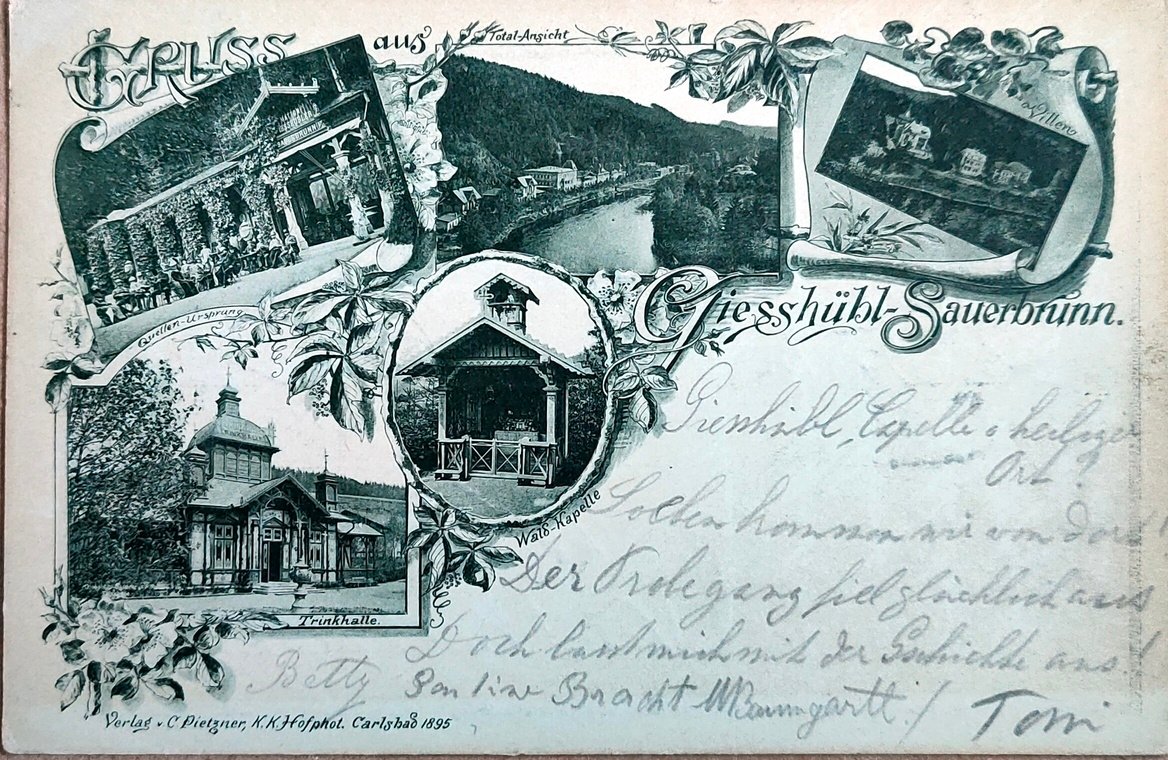 Gruss aus
Total-Ansicht
Villen
Giesshübl-Sauerbrunn.
Quellen-Ursprung
TRINKHALLE
Wald-Kapelle
Trinkhalle.
Giesshübl, Capelle heiliger
Ort?
Soeben kommen wir von dort
Der Probegang fiel glücklich aus
Doch lasst mich mit der Gschichte aus!
Betty
Bracht MBaumgartl
Toni
Verlag v. C. Pietzner, K.K. Hofphot. Carlsbad 1895